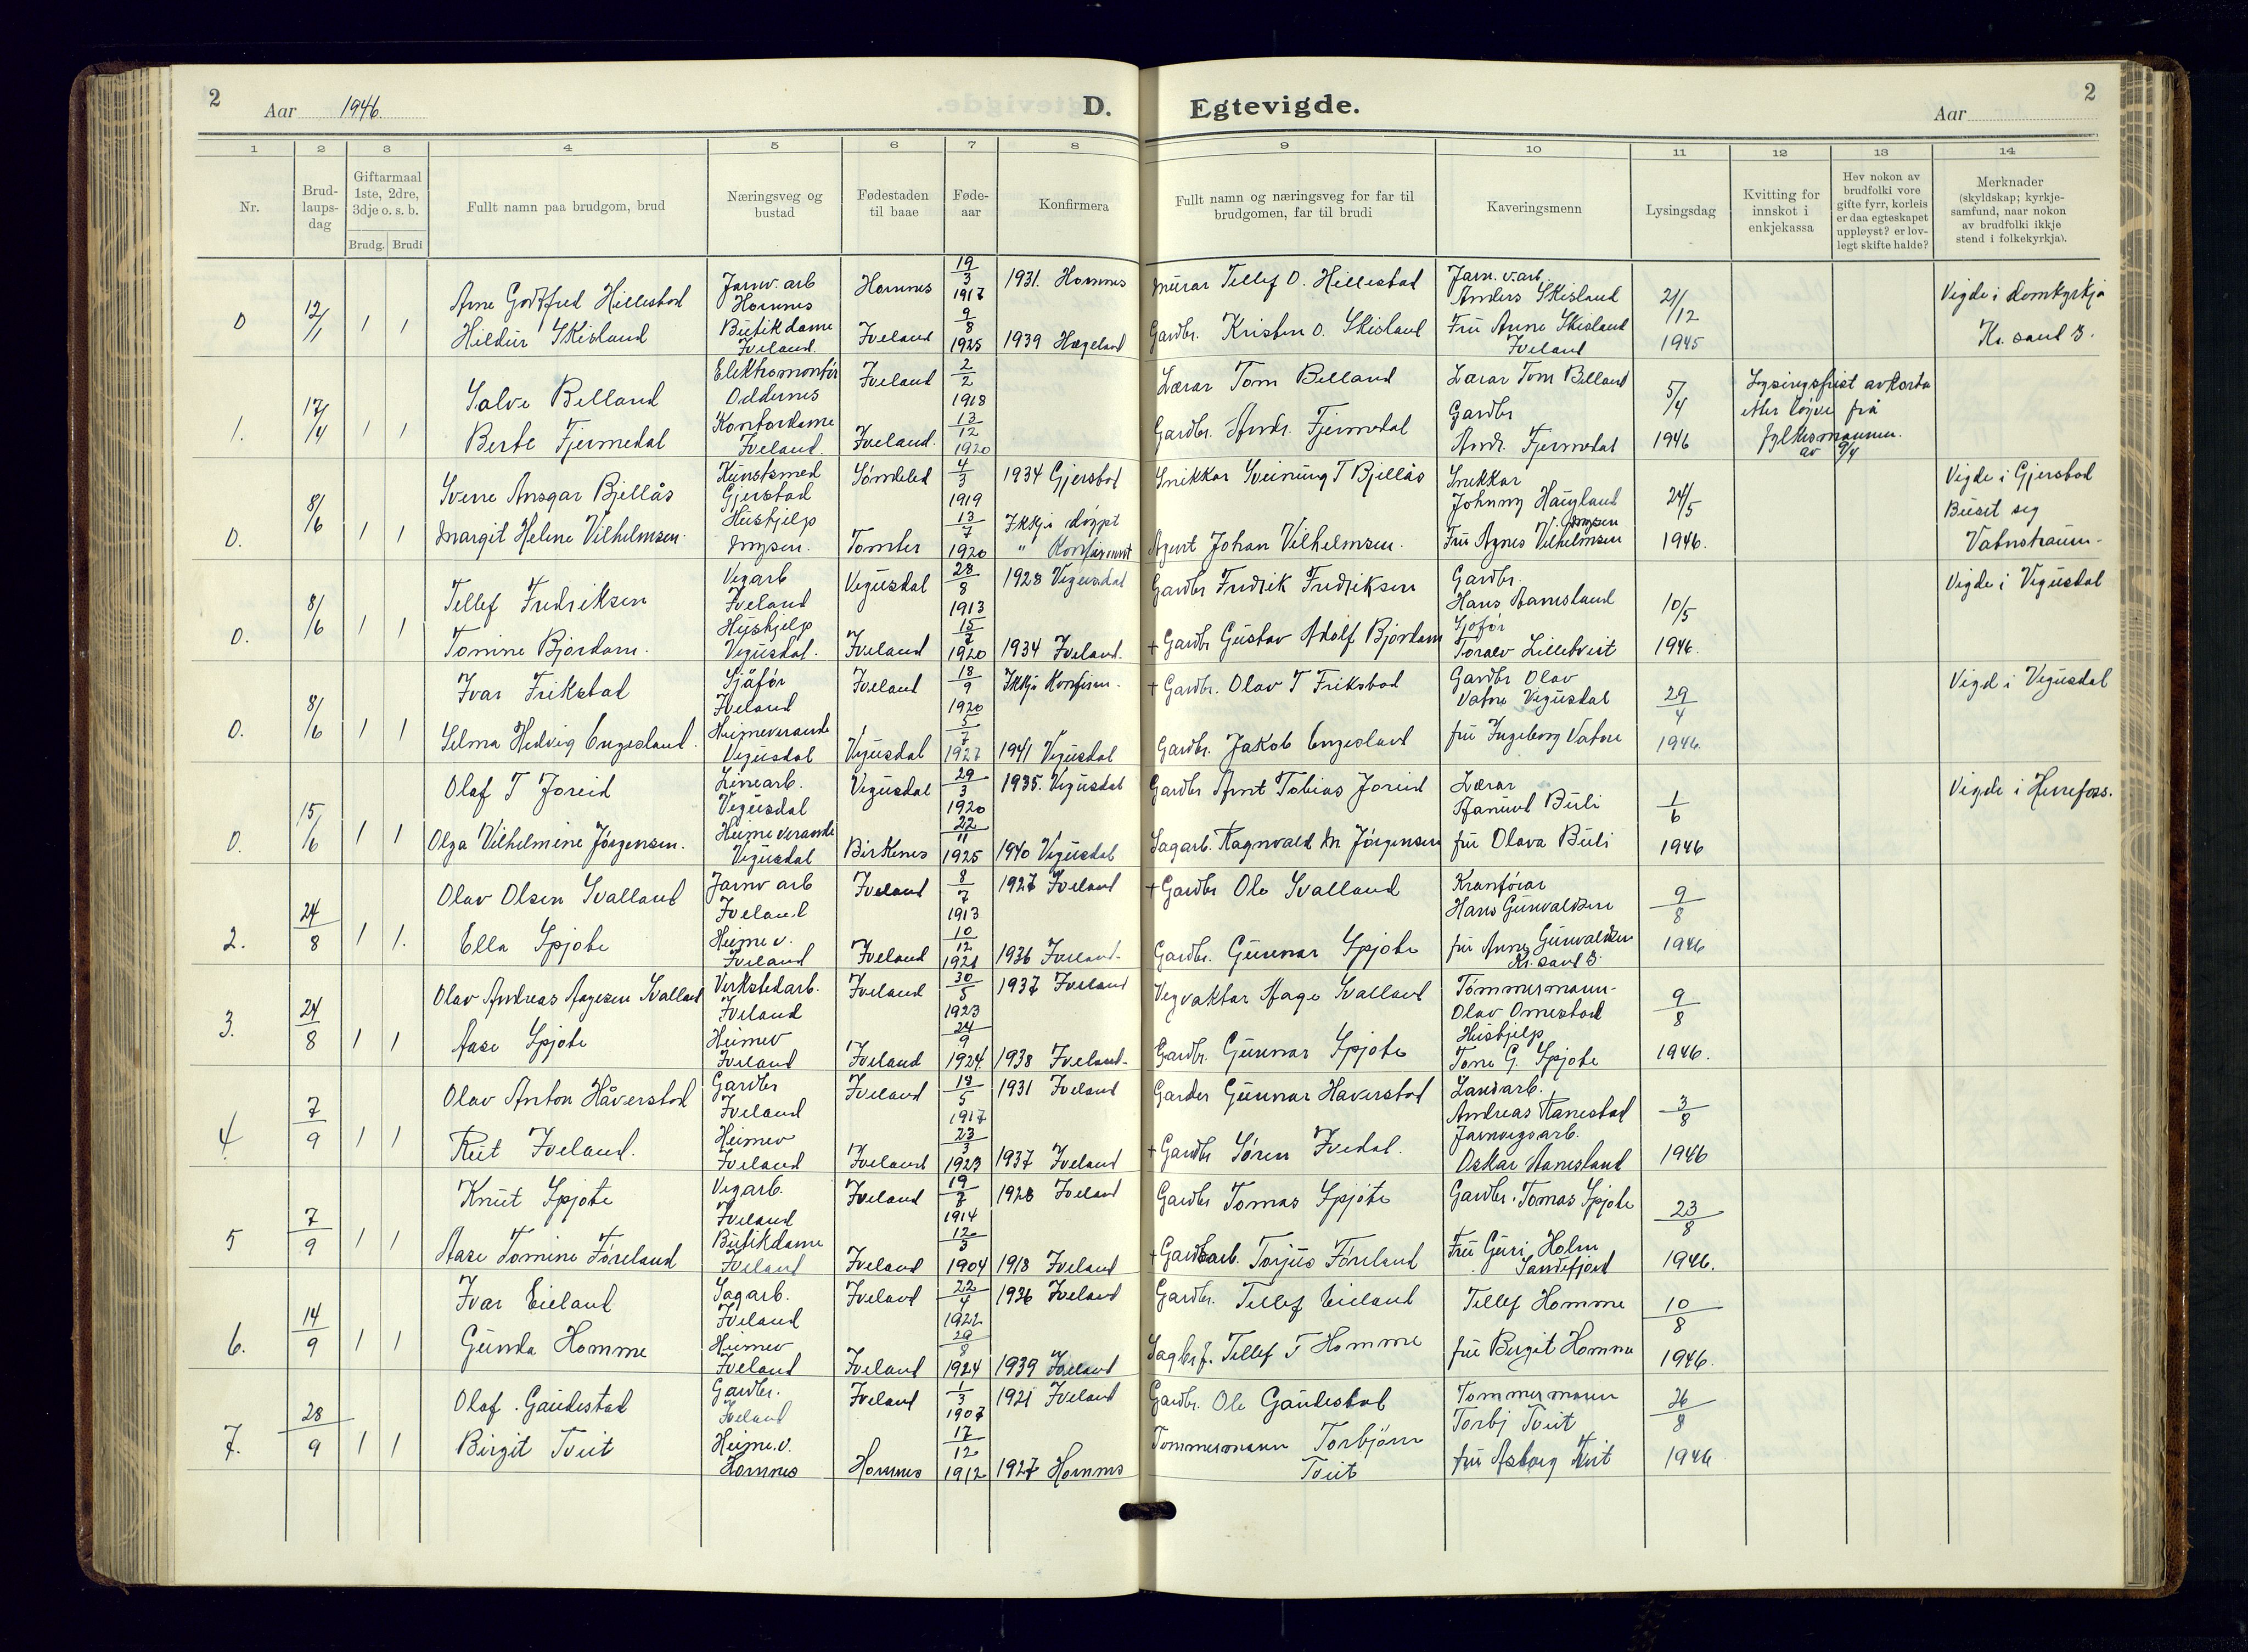 2
Aar 1946.
D. Egtevigde.
Aar
2
1 2 3 4 5 6 7 8 9 10 11 12 13 14
Nr.
Brud-
laups-
dag
Giftarmaal
1ste, 2dre,
3dje o. s. b.
Brudg. Brudi
Fullt namn paa brudgom, brud
Næringsveg og
bustad
Fødestaden
til baae
Føde-
aar
Konfirmera
Fullt namn og næringsveg for far til
brudgomen, far til brudi
Kaveringsmenn
Lysingsdag
Kvitting for
innskot i
enkjekassa
Hev nokon av
brudfolki vore
gifte fyrr, korleis
er daa egteskapet
uppløyst? er lov-
legt skifte halde?
Merknader
(skyldskap; kyrkje-
samfund, naar nokon
av brudfolki ikkje
stend i folkekyrkja).
0 12/1 1 1
Arne Godtfred Hillestad
Jarnv. arb
Hornnes
Hornnes
19/3 1917
1931. Hornnes
Murar Tellef O. Hillestad
Jarn. v. arb.
Anders Skisland
21/12 1945
Vigde i domkyrkja
Kr. sand S.
Hildur Skisland
Butikdame
Iveland.
Iveland
9/8 1925
1939 Hægeland
Gardbr. Kristen O. Skisland
Fru Anne Skisland
Iveland
1. 17/4 1 1
Salve Belland
Elektromontør
Oddernes
Iveland
2/2 1918
Lærar Tom Belland
Lærar Tom Belland
5/4 1946
Lysingsfrist avkorta
etter løyve frå
fylkesmannen.
av 9/4
Berte Fjermedal
Kontordame
Iveland.
Iveland.
13/12 1920
Gardbr. Andr. Fjermedal
Gardbr
Andr. Fjermedal
0. 8/6 1 1
Sverre Ansgar Bjellås
Kunstsmed
Gjerstad
Søndeled
4/3 1919
1934 Gjerstad
Snikkar Sveinung T Bjellås
Snekkar
Johnny Haugland
24/5 1946.
Vigde i Gjerstad
Busit seg
Vatnstraum.
Margit Helene Vilhelmsen.
Hushjelp
Mysen.
Tomter
13/7 1920
Ikkje døypt
" Konfirmert
Agent Johan Vilhelmsen.
Mysen
Fru Agnes Vilhelmsen
0. 8/6 1 1
Tellef Fredriksen
Vegarb
Iveland
Vegusdal
28/8 1913
1928 Vegusdal
Gardbr Fredrik Fredriksen
Gardbr.
Hans Aanesland
10/5 1946.
Vigde i Vegusdal
Tomine Bjordam.
Hushjelp
Vegusdal.
Iveland
15/7 1920
1934 Iveland.
+ Gardbr Gustav Adolf Bjordam
Sjofør
Toralv Lilletveit
0. 8/6 1 1
Ivar Frikstad
Sjåfør
Iveland
Iveland
18/9 1920
Ikkje Konfirm.
+ Gardbr. Olav T Frikstad
Gardbr Olav
Vatne Vegusdal
29/4 1946.
Vigd i Vegusdal
Selma Hedvig Engesland.
Heimeverande
Vegusdal
Vegusdal
5/7 1927
1941 Vegusdal
Gardbr. Jakob Engesland
fru Ingeborg Vatne
0. 15/6 1 1
Olaf T Joreid
Linearb.
Vegusdal
Vegusdal
29/3 1920
1935. Vegusdal
Gardbr Arnt Tobias Joreid
Lærar
Buli
1/6 1946
Vigde i Herefoss.
Olga Vilhelmine Jørgensen.
Heime verande
Vegusdal
Birkenes
22/11 1925
1940 Vegusdal
Sagarb. Ragnvald M Jørgensen
fru Olava Buli
2. 24/8 1 1.
Olav Olsen Svalland
Jarnv arb
Iveland
Iveland
8/7 1913
1927 Iveland
+ Gardbr Ole Svalland
Kranførar
Hans Gunvaldsen
9/8 1946
Ella Spjote
Heime v.
Iveland
Iveland
10/12 1921
1936 Iveland.
Gardbr. Gunnar Spjote
fru Anne Gunvaldsen
Kr. sand S.
3. 24/8 1 1
Olav Andreas Aagesen Svalland
Verkstedarb.
Iveland
Iveland
30/5 1923
1937 Iveland
Vegvaktar Aage Svalland
Tømmermann.
Olav Omestad
9/8 1946.
Aase Spjote
Heimev
Iveland
Iveland
24/9 1924.
1938 Iveland.
Gardbr. Gunnar Spjote
Hushjelp
Tone G. Spjote
4. 7/9 1 1
Olav Anton Håverstad
Gardbr
Iveland
Iveland
18/5 1917
1931 Iveland
Garder Gunnar Haverstad
Landarb.
Andreas Ranestad
3/8 1946
Rut Iveland.
Heimev
Iveland
Iveland
23/3 1923
1937 Iveland
+ Gardbr Søren Ivedal.
Jarnvegsarb.
Oskar Aanesland
5 7/9 1 1
Knut Spjote
Vegarb.
Iveland
Iveland
19/8 1914
1928 Iveland
Gardbr Tomas Spjote
Gardbr. Tomas Spjote
23/8 1946.
Aase Tomine Føreland
Butikdame
Iveland
Iveland
12/3 1904
1918 Iveland
+ Torjus Føreland
Fru Guri Holm
Sandefjord
6. 14/9 1 1
Ivar Eieland
Sagarb.
Iveland
Iveland
22/4 1922
1936 Iveland
Gardbr. Tellef Eieland
Tellef Homme
10/8 1946.
Gunda Homme
Heimev
Iveland
Iveland
29/8 1924
1939 Iveland
Tellef T Homme
fru Birgit Homme
7. 28/9 1 1
Olaf. Gaudestad
Gardbr.
Iveland
Iveland
1/3 1907
1921 Iveland
Gardbr. Ole Gaudestad
Tommermann
Torbj Tveit
26/8 1946
Birgit Tveit
Heime.v.
Hornnes
Hornnes
17/12 1912
1927 Hornnes
Tommermann Torbjørn
Tveit
fru Asborg Tveit